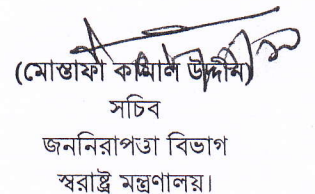 (মোস্তাফা কামাল উদ্দীন)
সচিব
জননিরাপত্তা বিভাগ
স্বরাষ্ট্র মন্ত্রণালয়।